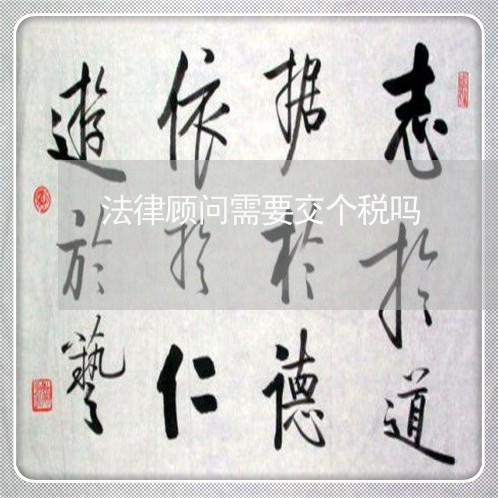 志於道
据於德
依於仁
遊於藝
法律顾问需要交个税吗